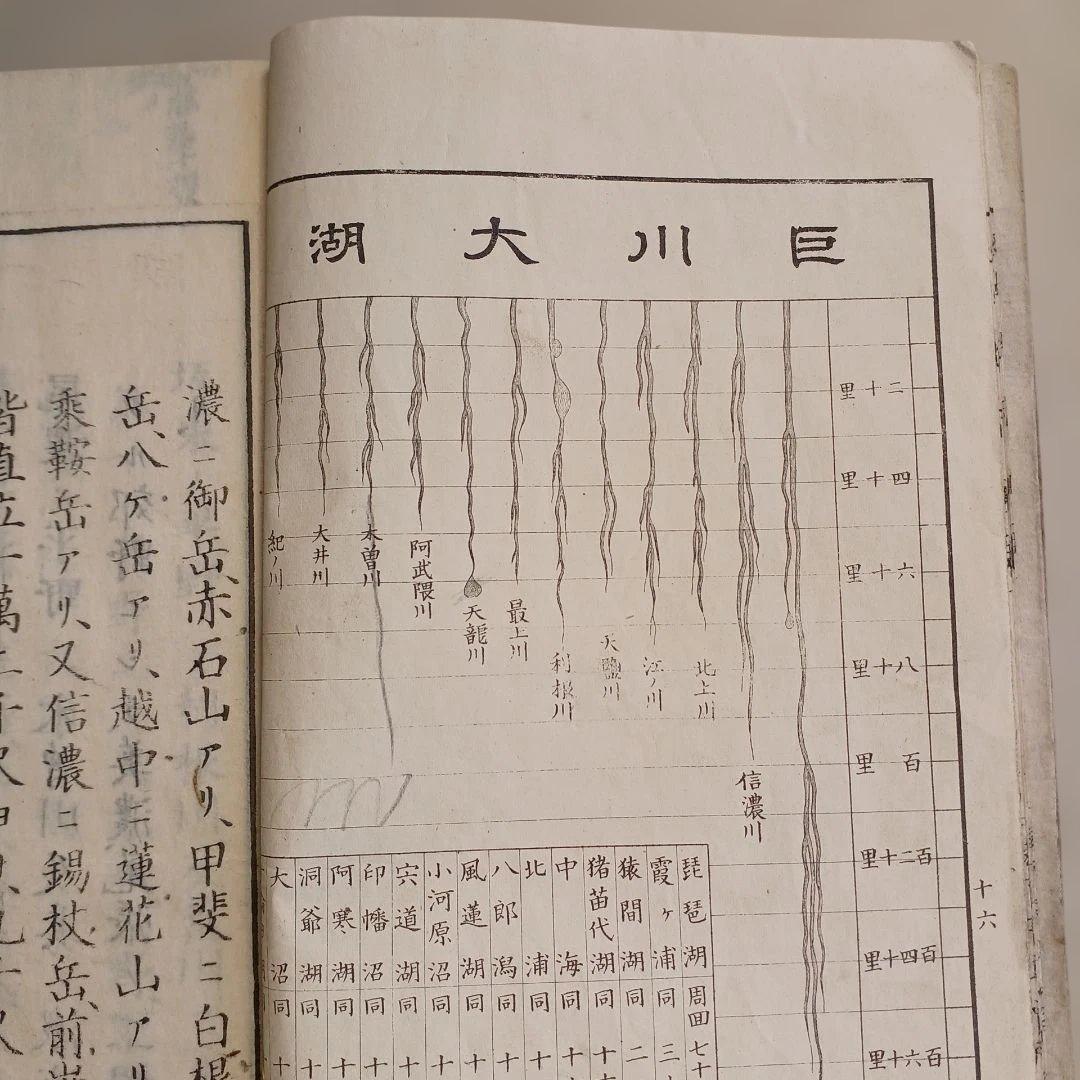 巨川大湖
二十里
四十里
六十里
八十里
百里
百二十里
百四十里
百六十里
信濃川
北上川
江ノ川
天鹽川
利根川
最上川
天龍川
阿武隈川
木曽川
大井川
紀ノ川
琵琶湖周回七十
霞ヶ浦同三
猿間湖同二
猪苗代湖同十
中海同十
北浦同十
八郎潟同十
風蓮湖同十
小河原沼同十
宍道湖同十
印幡沼同十
阿寒湖同十
洞爺湖同十
大沼同十
十六
濃ニ御岳、赤石山アリ、甲斐ニ白根
岳、八ケ岳アリ、越中ニ蓮花山アリ
乗鞍岳アリ、又信濃ニ錫杖岳、前